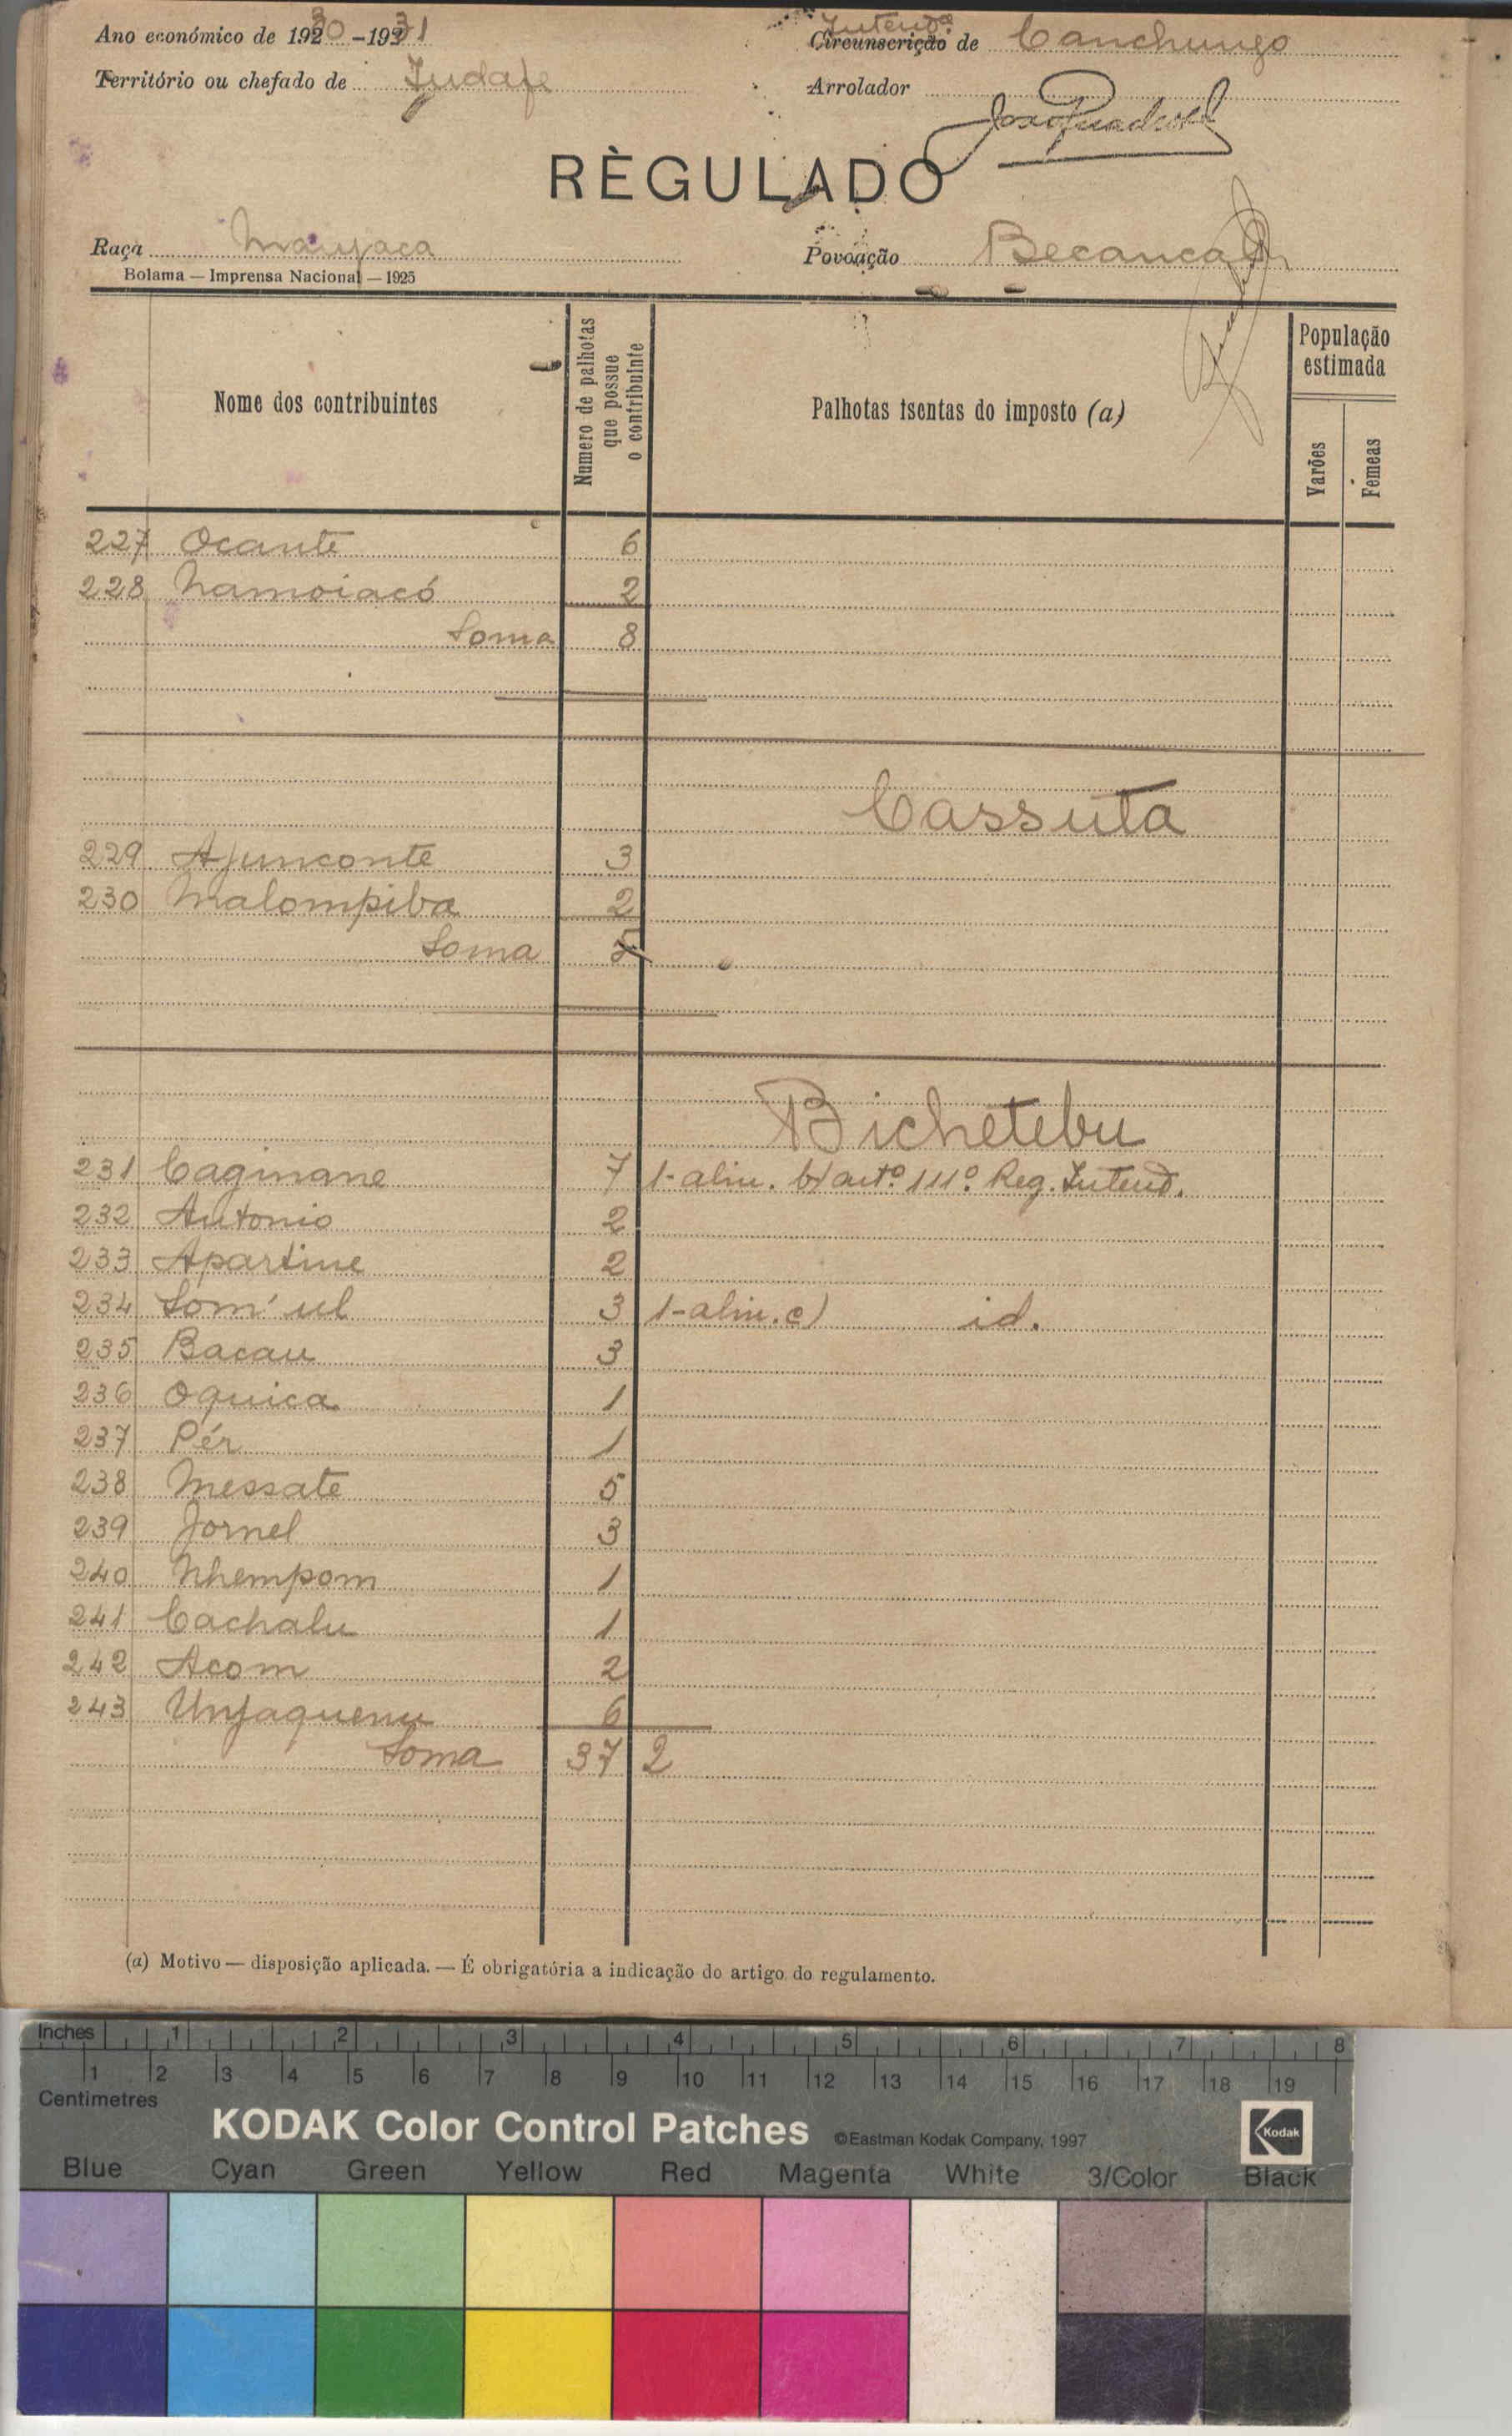 Ano económico de 1930-1931
Intend.ª
Circunscrição de Canchungo
Território ou chefado de Indafe
Arrolador
RÈGULADO
Raça Manjaca
Povoação Becanca
Bolama — Imprensa Nacional — 1925
Nome dos contribuintes
Numero de palhotas
que possue
o contribuinte
Palhotas isentas do imposto (a)
População
estimada
Varões
Femeas
227 Ocante 6
228 Namoiacó 2
Soma 8
Cassuta
229 Ajunconte 3
230 Malompiba 2
Soma 5
Bichetebu
231 Caginane 7 1-alin. b) artº 111º Reg. Intend.
232 Antonio 2
233 Apartine 2
234 Som'ul 3 1-alin. c) id.
235 Bacau 3
236 Oquica 1
237 Pér 1
238 Messate 5
239 Jornel 3
240 Nhempom 1
241 Cachalu 1
242 Acom 2
243 Unjaquenu 6
Soma 37 2
(a) Motivo — disposição aplicada. — É obrigatória a indicação do artigo do regulamento.
Inches 1 2 3 4 5 6 7 8
1 2 3 4 5 6 7 8 9 10 11 12 13 14 15 16 17 18 19
Centimetres
KODAK Color Control Patches ©Eastman Kodak Company, 1997 Kodak
Blue Cyan Green Yellow Red Magenta White 3/Color Black